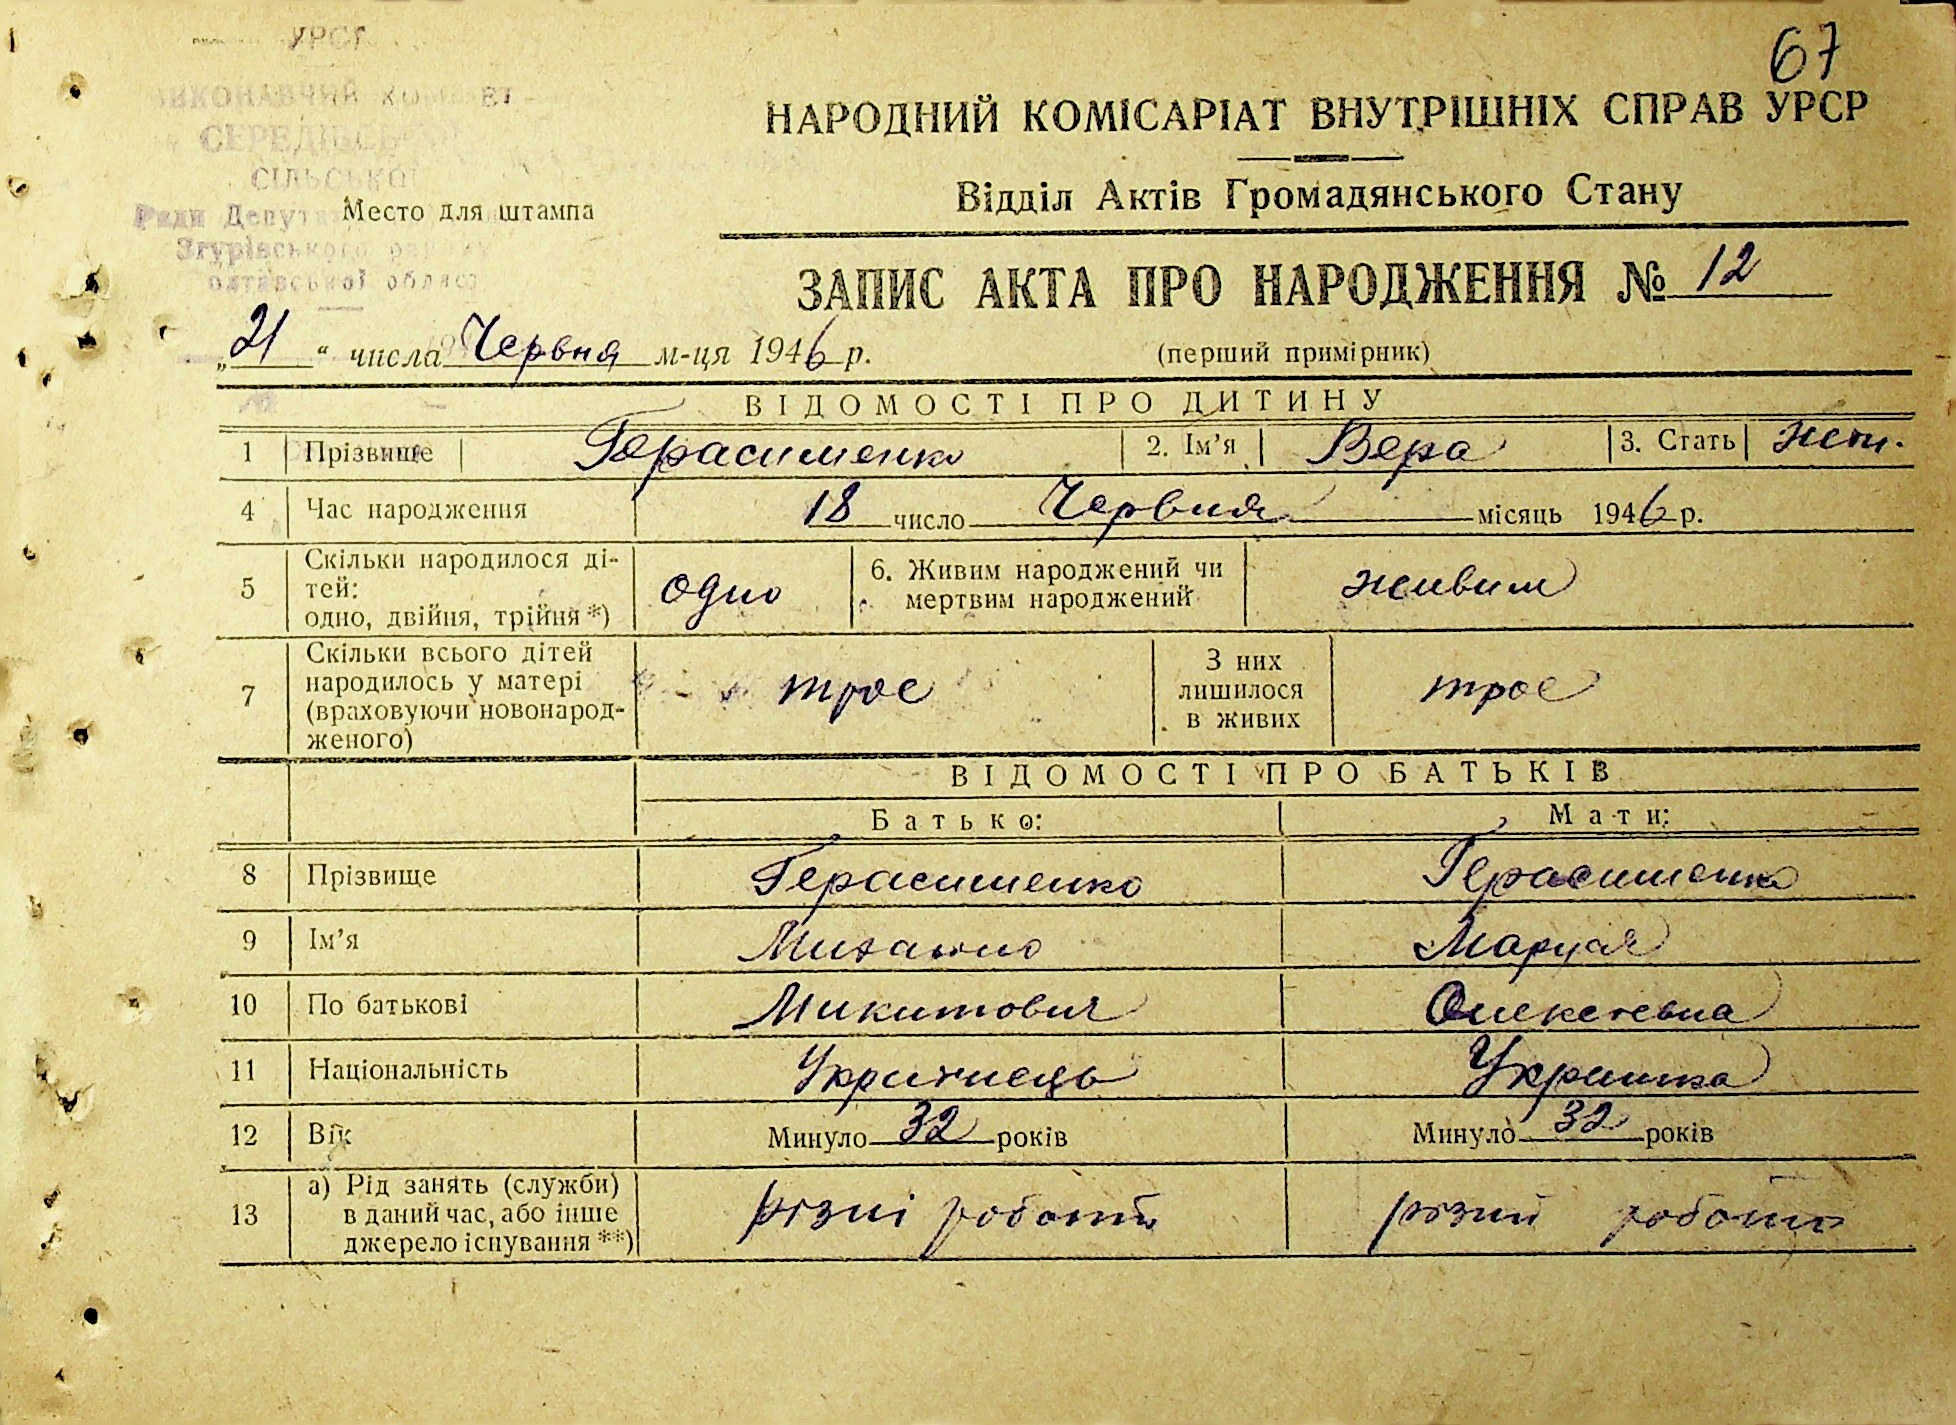 67
УРСР
ВИКОНАВЧИЙ КОМІТЕТ
СІЛЬСЬКОЇ
Ради Депутатів
Згурівського району
Полтавської області
Место для штампа
НАРОДНИЙ КОМІСАРІАТ ВНУТРІШНІХ СПРАВ УРСР
Відділ Актів Громадянського Стану
ЗАПИС АКТА ПРО НАРОДЖЕННЯ № 12
„21“ числа Червня м-ця 1946 р.
(перший примірник)
ВІДОМОСТІ ПРО ДИТИНУ
1 Прізвище Герасименко 2. Ім’я Вера 3. Стать жен.
4 Час народження 18 число Червня місяць 1946 р.
5 Скільки народилося ді-
тей:
одно, двійня, трійня *) одно 6. Живим народжений чи
мертвим народжений живим
7 Скільки всього дітей
народилось у матері
(враховуючи новонарод-
женого) троє З них
лишилося
в живих троє
ВІДОМОСТІ ПРО БАТЬКІВ
Батько: Мати:
8 Прізвище Герасименко Герасименко
9 Ім’я Михайло Маруся
10 По батькові Микитович Олексєевна
11 Національність Українець Українка
12 Вік Минуло 32 років Минуло 32 років
13 а) Рід занять (служби)
в даний час, або інше
джерело існування **) різні роботи різни роботи